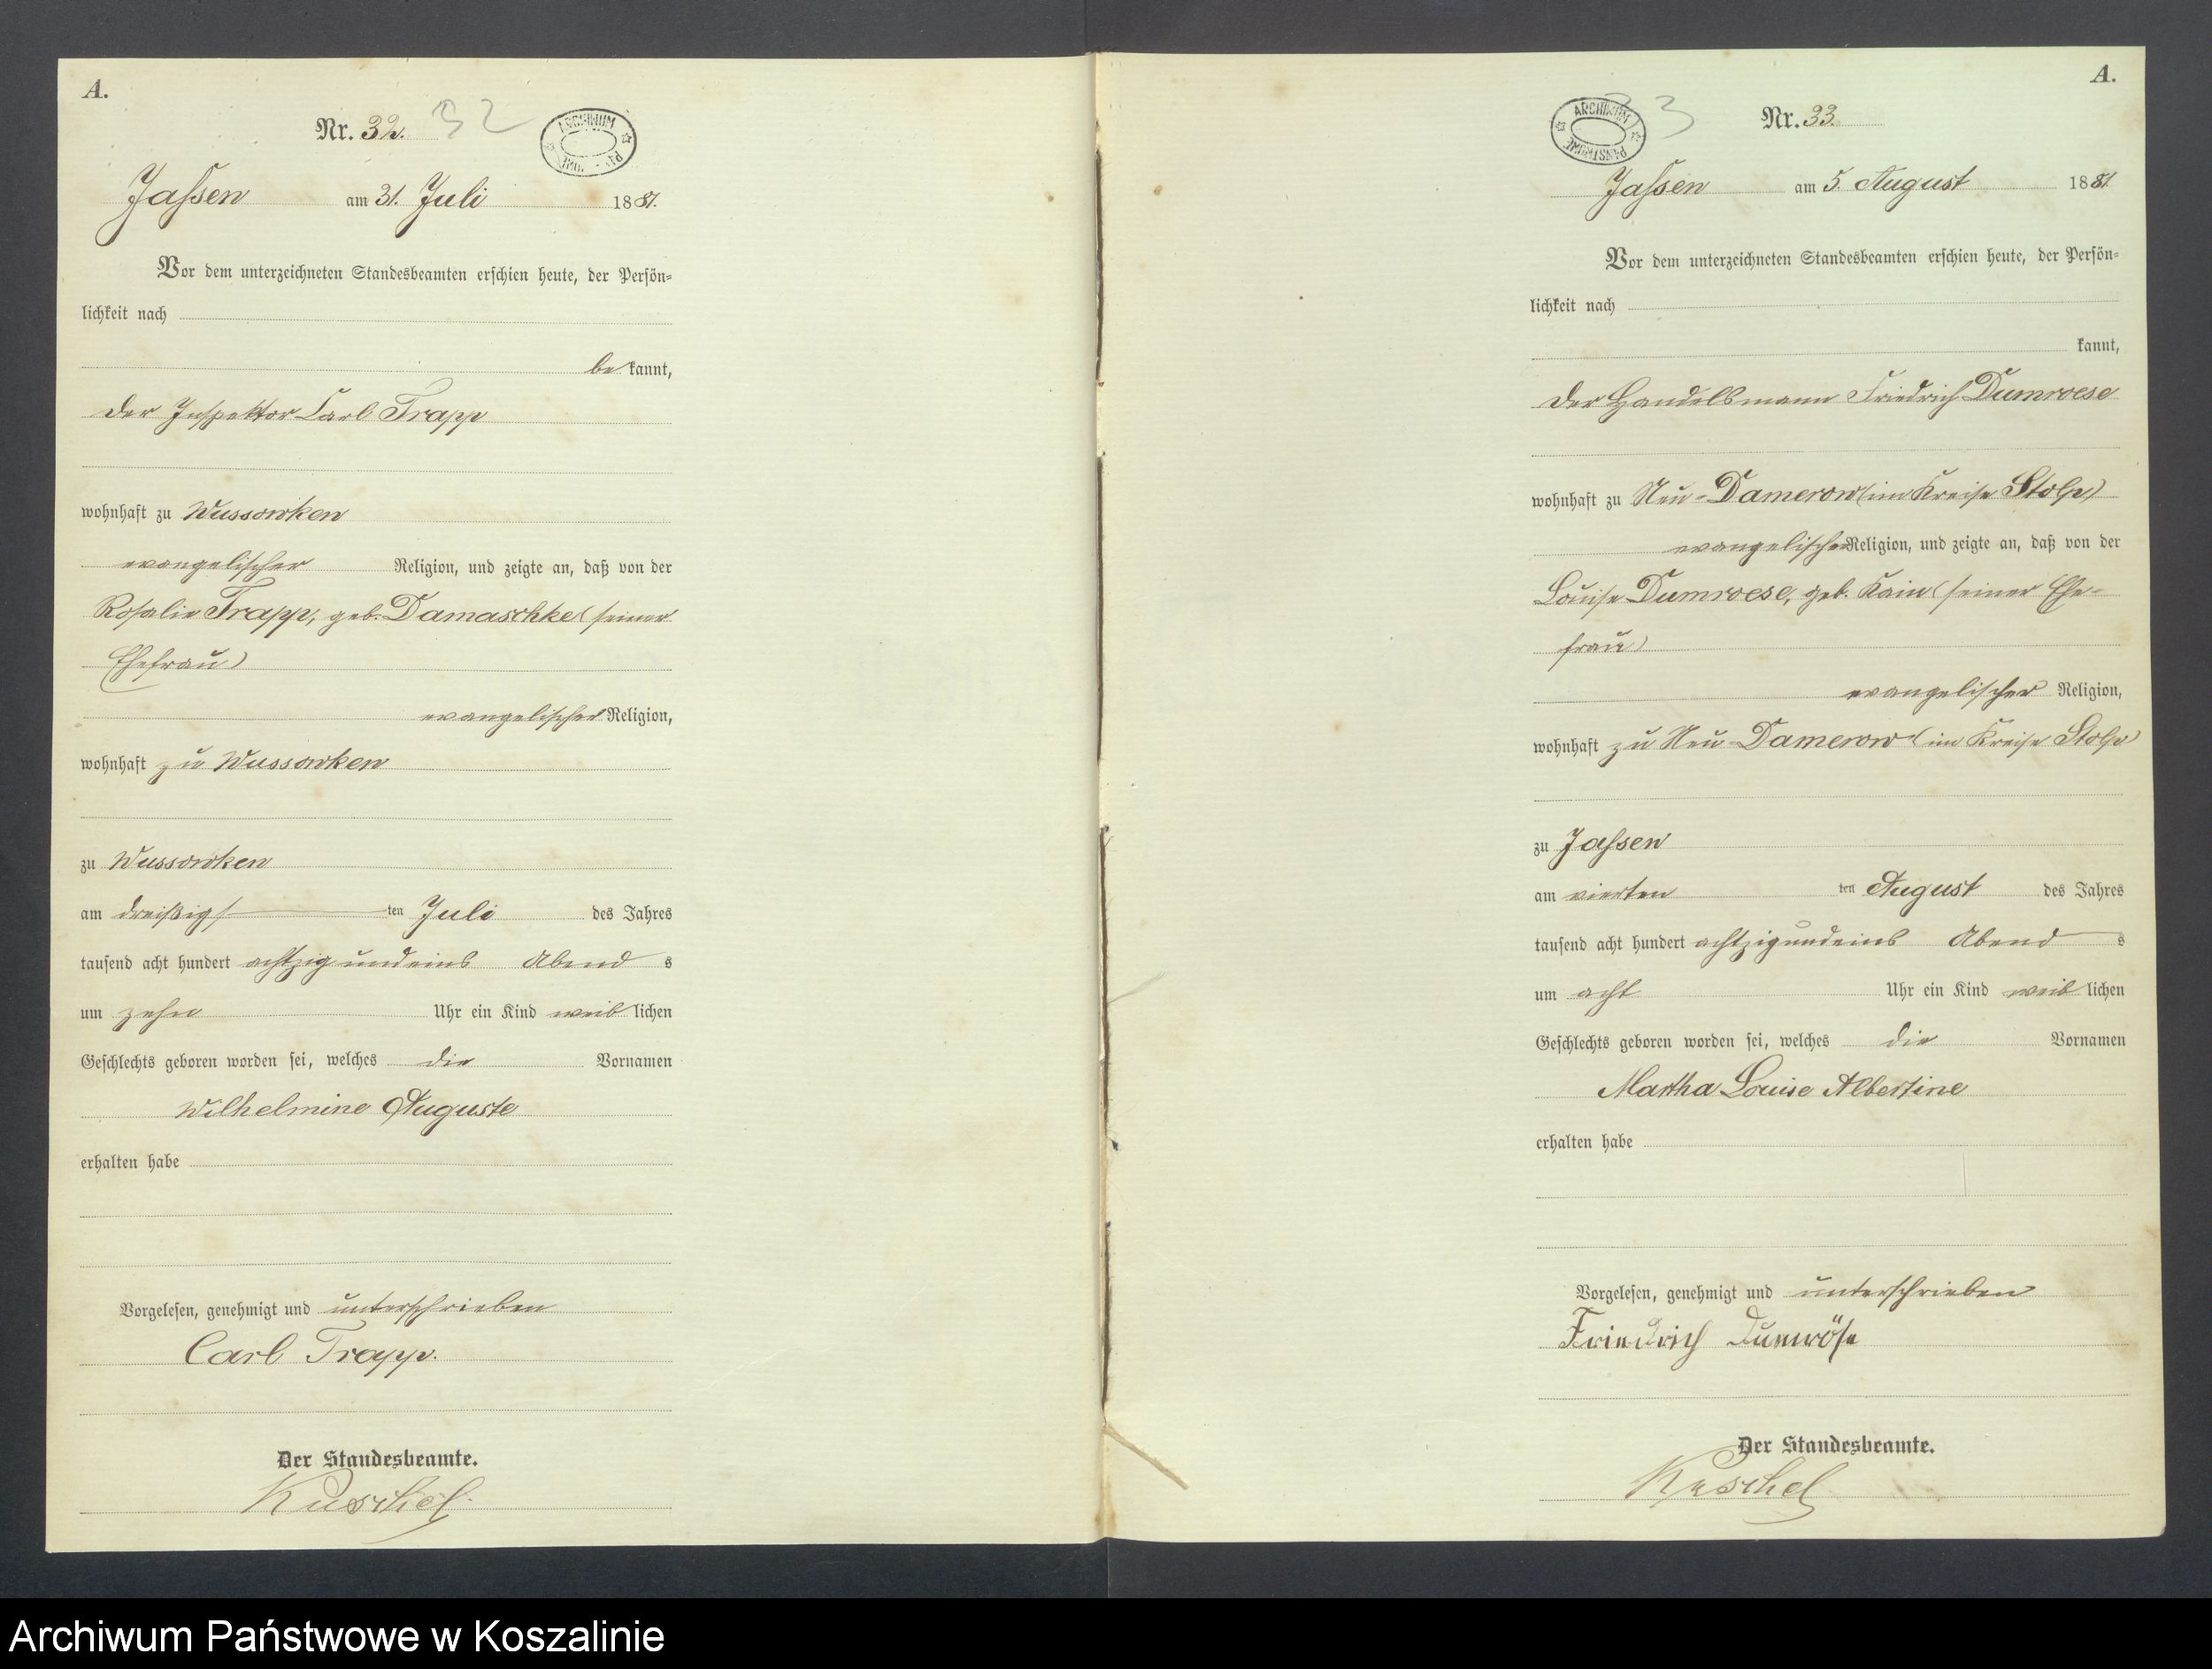 A.
Nr. 32. 32
ARCHIWUM
Jassen am 31. Juli 1881.
Vor dem unterzeichneten Standesbeamten erschien heute, der Persön-
lichkeit nach
be kannt,
der Inspektor Carl Trapp
wohnhaft zu Wussowken
evangelischer Religion, und zeigte an, daß von der
Rosalie Trapp, geb. Damaschke (seiner
Ehefrau)
evangelischer Religion,
wohnhaft zu Wussowken
zu Wussowken
am dreißigs ten Juli des Jahres
tausend acht hundert achtzig und eins Abend s
um zehn Uhr ein Kind weib lichen
Geschlechts geboren worden sei, welches die Vornamen
Wilhelmine Auguste
erhalten habe
Vorgelesen, genehmigt und unterschrieben
Carl Trapp.
Der Standesbeamte.
Kuschel.
A.
ARCHIWUM PAŃSTWOWE 33 Nr. 33.
Jassen am 5. August 1881
Vor dem unterzeichneten Standesbeamten erschien heute, der Persön-
lichkeit nach
kannt,
der Handelsmann Friedrich Dumroese
wohnhaft zu Neu-Damerow (im Kreise Stolp)
evangelischer Religion, und zeigte an, daß von der
Louise Dumroese, geb. Kain (seiner Ehe-
frau)
evangelischer Religion,
wohnhaft zu Neu-Damerow (im Kreise Stolp)
zu Jassen
am vierten ten August des Jahres
tausend acht hundert achtzigundeins Abend s
um acht Uhr ein Kind weib lichen
Geschlechts geboren worden sei, welches die Vornamen
Martha Louise Albertine
erhalten habe
Vorgelesen, genehmigt und unterschrieben
Friedrich Dumröse
Der Standesbeamte.
Kuschel
Archiwum Państwowe w Koszalinie